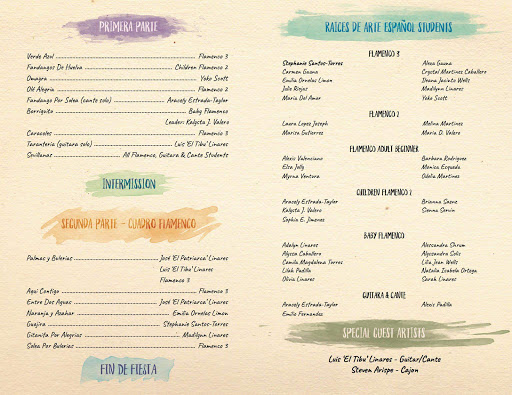 PRIMERA PARTE
Verde Azul Flamenco 3
Fandangos De Huelva Children Flamenco 2
Omagra Yoko Scott
Olé Alegria Flamenco 2
Fandango Por Solea (cante solo) Aracely Estrada-Taylor
Borriquito Baby Flamenco
Leader: Kalysta J. Valero
Caracoles Flamenco 3
Taranteria (guitara solo) Luis 'El Tibu' Linares
Sevillanas All Flamenco, Guitara & Cante Students
INTERMISSION
SEGUNDA PARTE - CUADRO FLAMENCO
Palmas y Bulerias José 'El Patriarca' Linares
Luis 'El Tibu' Linares
Flamenco 3
Aqui Contigo Flamenco 3
Entre Dos Aguas José 'El Patriarca' Linares
Naranja y Azahar Emilia Ornelas Limon
Guajira Stephanie Santos-Torres
Gitanita Por Alegrias Madilynn Linares
Solea Por Bulerias Flamenco 3
FIN DE FIESTA
RAICES DE ARTE ESPAÑOL STUDENTS
FLAMENCO 3
Stephanie Santos-Torres Alexa Gauna
Carmen Gauna Crystal Martinez Caballero
Emilia Ornelas Limon Ileana Jacinto Wells
Julie Riojas Madilynn Linares
Maria Del Amor Yoko Scott
FLAMENCO 2
Laura Lopez Joseph Melina Martinez
Marisa Gutierrez Maria D. Valero
FLAMENCO ADULT BEGINNER
Alexis Valenciano Barbara Rodriguez
Elsa Jolly Monica Esquada
Myrna Ventura Odelia Martinez
CHILDREN FLAMENCO 2
Aracely Estrada-Taylor Brianna Saenz
Kalysta J. Valero Sienna Servin
Sophia E. Jimenez
BABY FLAMENCO
Adalyn Linares Alessandra Shrum
Alyssa Caballero Alyssandra Solis
Camila Magdalena Torres Lila Jean Wells
Lilah Padilla Natalia Izabela Ortega
Olivia Linares Sarah Linares
GUITARA & CANTE
Aracely Estrada-Taylor Alexis Padilla
Emilia Fernandez
SPECIAL GUEST ARTISTS
Luis 'El Tibu' Linares - Guitar/Cante
Steven Arispe - Cajon